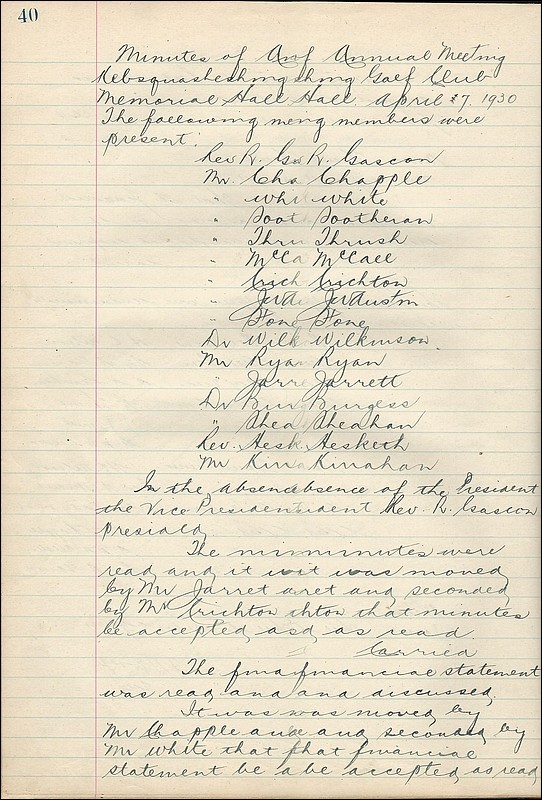 40
Minutes of Anf Annual Meeting
Kebsquasheshing shing Golf Club
Memorial Hall Hall. April 27, 1930
The following meng members were
present:
Rev R. Ga R. Gascon
Mr. Cha Chapple
" Whi White
" Soot Sootheran
" Thru Thrush
" McCa McCall
" Crich Crichton
" JWA JWAustin
" Stone Stone
Dr Wilk Wilkinson
Mr Ryan Ryan
" Jarre Jarrett
Dr Burg Burgess
" Shea Sheahan
Rev. Hesk Hesketh
Mr Kinra Kinrahan
In the absence absence of the President
the Vice President sident Rev. R. Gascon
presided.
The min minutes were
read and it wit was moved
by Mr Jarret arret and seconded
by Mr Crichton ihton that minutes
be accepted asd as read.
Carried
The fina financial statement
was read and and discussed.
It was was moved by
Mr Chapple and and seconded by
Mr White that that financial
statement be a be accepted as read